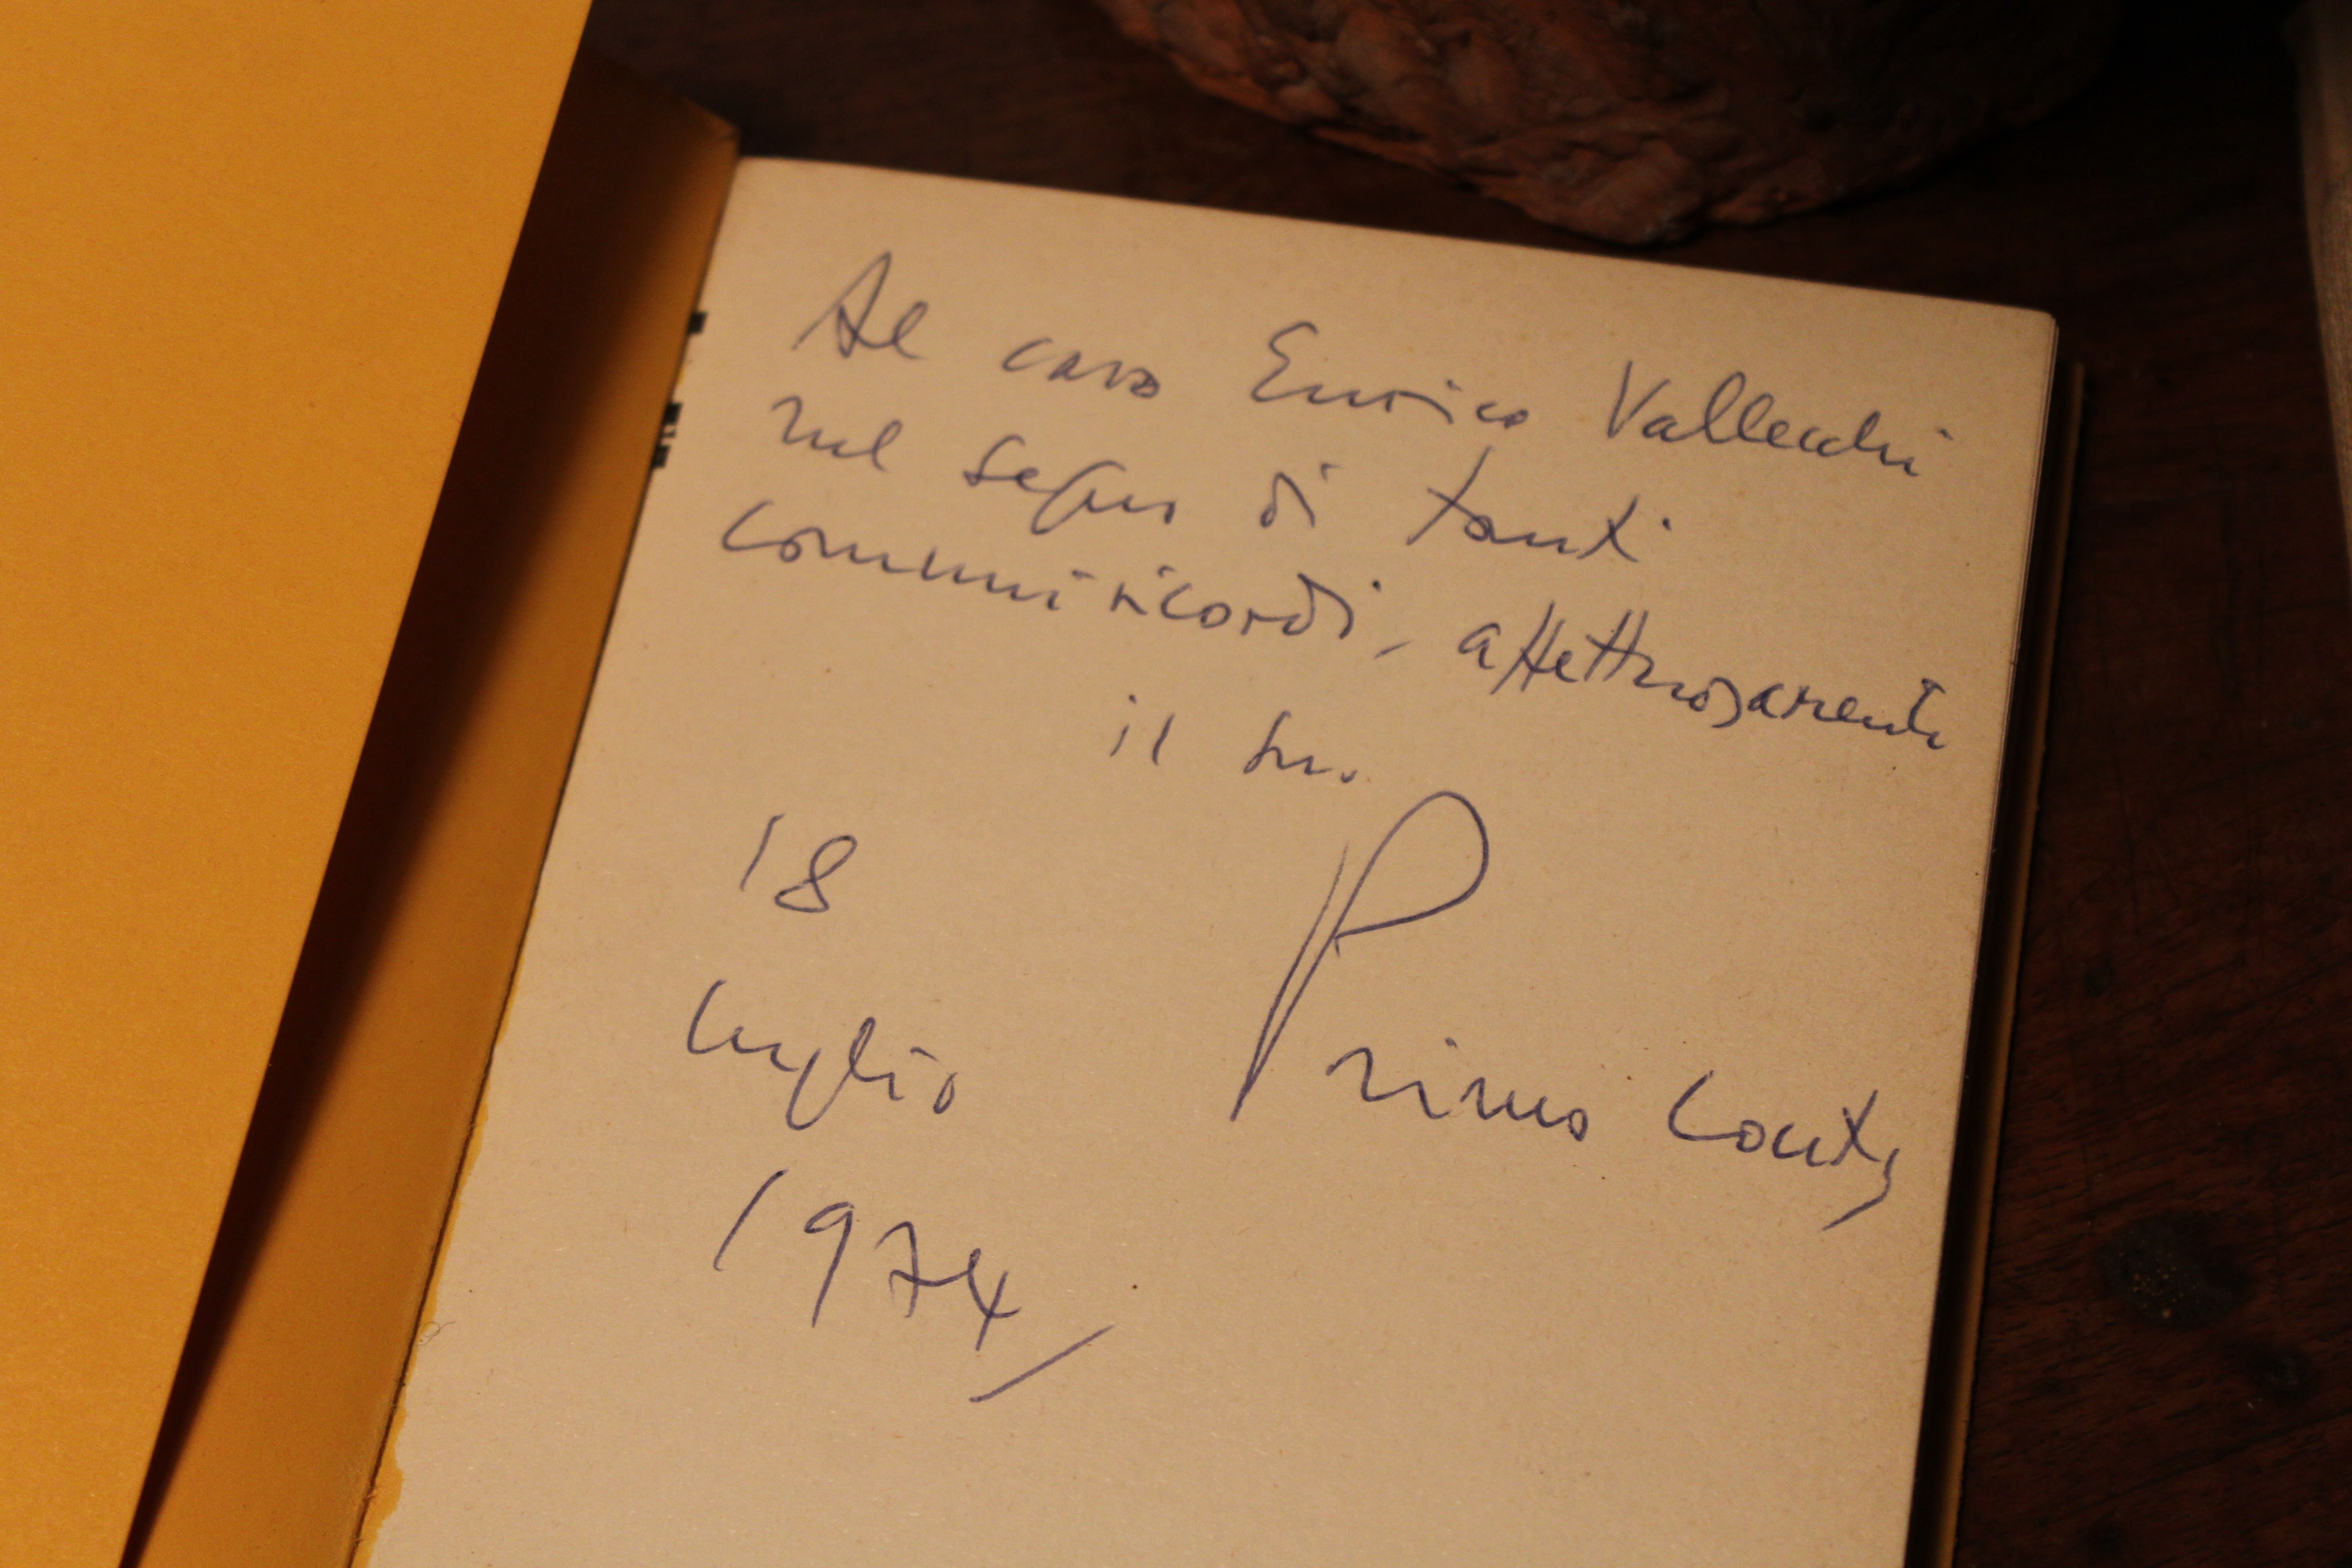 Al caro Enrico Vallecchi
nel segno di tanti
comuni ricordi, affettuosamente
il suo
Primo Conti
18
luglio
1974